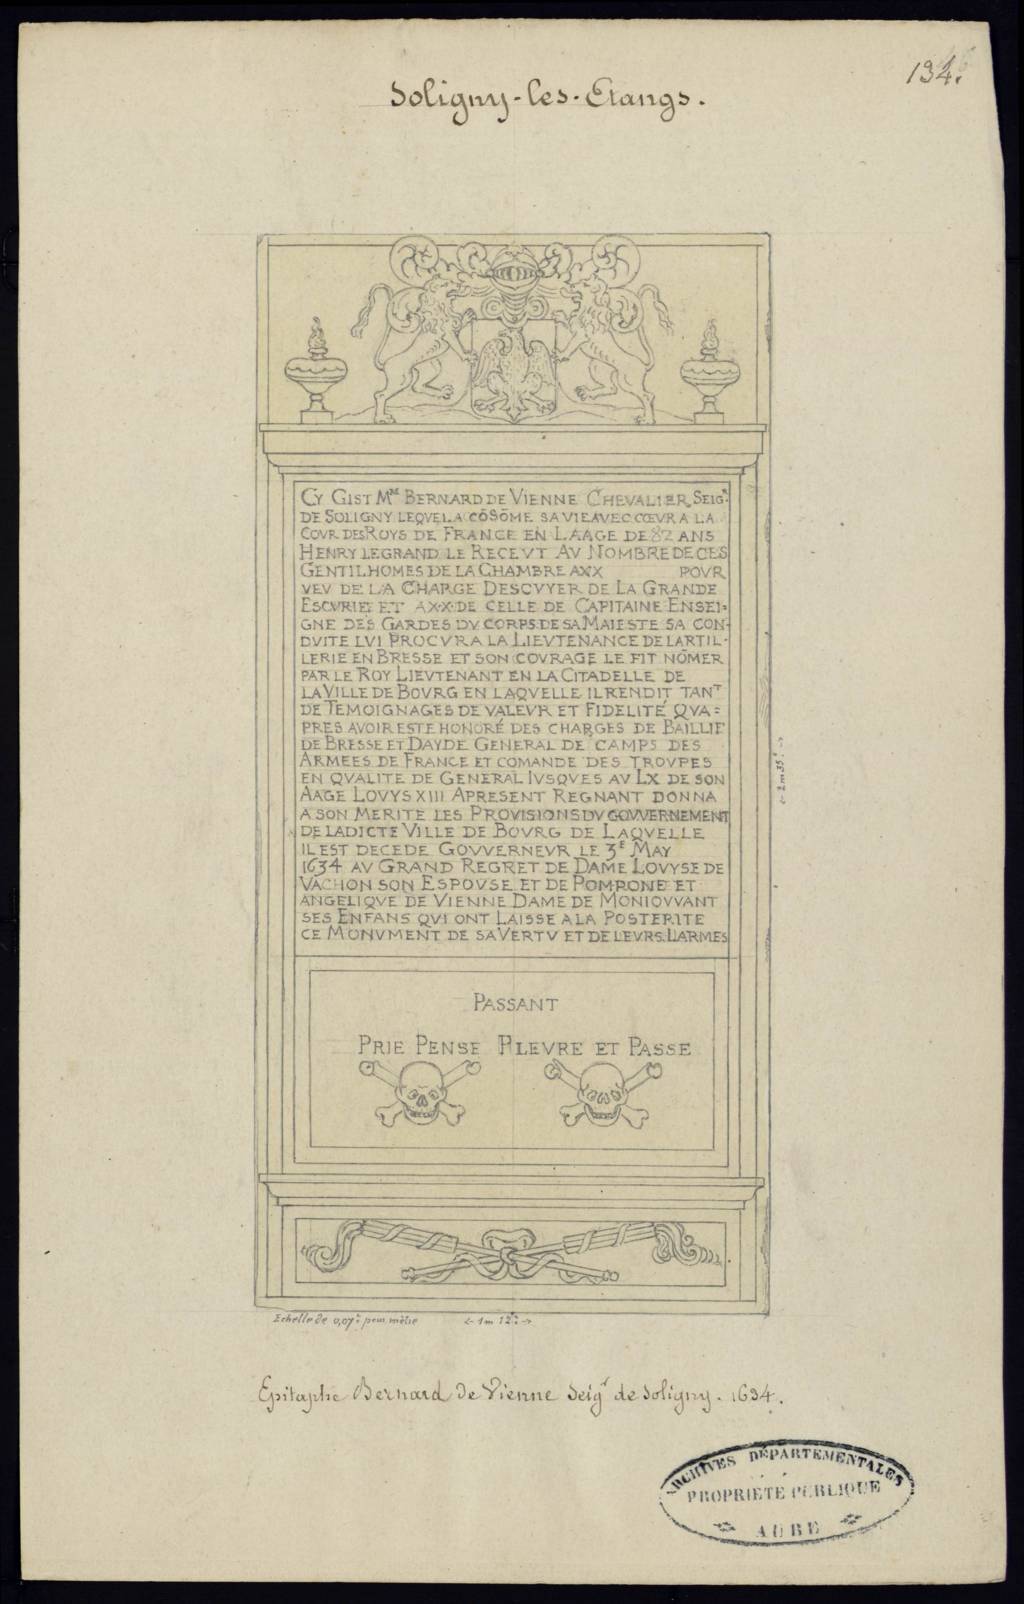 134.
Soligny-les-Etangs.
CY GIST MRE BERNARD DE VIENNE CHEVALIER SEIGR
DE SOLIGNY LEQVEL A CŌSŌME SA VIE AVEC CŒVR A LA
COVR DES ROYS DE FRANCE EN LAAGE DE 82 ANS
HENRY LE GRAND LE RECEVT AV NOMBRE DE CES
GENTILHOMES DE LA CHAMBRE A XX POVR
VEV DE LA CHARGE DESCVYER DE LA GRANDE
ESCVRIE ET A XX DE CELLE DE CAPITAINE ENSEI=
GNE DES GARDES DV CORPS DE SA MAIESTE SA CON-
DVITE LVI PROCVRA LA LIEVTENANCE DE LARTIL-
LERIE EN BRESSE ET SON COVRAGE LE FIT NŌMER
PAR LE ROY LIEVTENANT EN LA CITADELLE DE
LA VILLE DE BOVRG EN LAQVELLE IL RENDIT TANT
DE TEMOIGNAGES DE VALEVR ET FIDELITÉ QVA=
PRES AVOIR ESTE HONORÉ DES CHARGES DE BAILLIF
DE BRESSE ET DAYDE GENERAL DE CAMPS DES
ARMEES DE FRANCE ET COMANDE DES TROVPES
EN QVALITE DE GENERAL IVSQVES AV LX DE SON
AAGE LOVYS XIII APRESENT REGNANT DONNA
A SON MERITE LES PROVISIONS DV GOVVERNEMENT
DE LADICTE VILLE DE BOVRG DE LAQVELLE
IL EST DECEDE GOVVERNEVR LE 3E MAY
1634 AV GRAND REGRET DE DAME LOVYSE DE
VACHON SON ESPOVSE ET DE POMPONE ET
ANGELIQVE DE VIENNE DAME DE MONIOVVANT
SES ENFANS QVI ONT LAISSE A LA POSTERITE
CE MONVMENT DE SA VERTV ET DE LEVRS LARMES
PASSANT
PRIE PENSE PLEVRE ET PASSE
← 2m 35c →
Echelle de 0,07c pour mètre
← 1m 12c →
Epitaphe Bernard de Vienne Seigr de Soligny. 1634.
ARCHIVES DÉPARTEMENTALES
PROPRIÉTÉ PUBLIQUE
AUBE